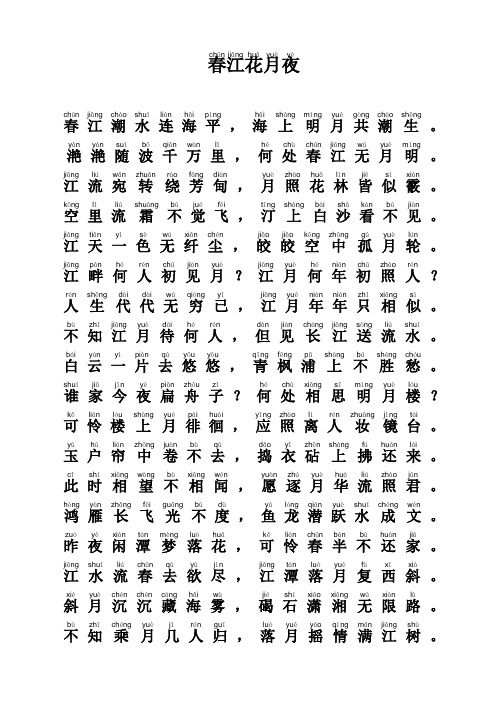 chūn jiāng huā yuè yè
春江花月夜
chūn jiāng cháo shuǐ lián hǎi píng hǎi shàng míng yuè gòng cháo shēng
春江潮水连海平，海上明月共潮生。
yàn yàn suí bō qiān wàn lǐ hé chù chūn jiāng wú yuè míng
滟滟随波千万里，何处春江无月明。
jiāng liú wǎn zhuǎn rào fāng diàn yuè zhào huā lín jiē sì xiàn
江流宛转绕芳甸，月照花林皆似霰。
kōng lǐ liú shuāng bù jué fēi tīng shàng bái shā kàn bù jiàn
空里流霜不觉飞，汀上白沙看不见。
jiāng tiān yí sè wú xiān chén jiǎo jiǎo kōng zhōng gū yuè lún
江天一色无纤尘，皎皎空中孤月轮。
jiāng pàn hé rén chū jiàn yuè jiāng yuè hé nián chū zhào rén
江畔何人初见月？江月何年初照人？
rén shēng dài dài wú qióng yǐ jiāng yuè nián nián zhǐ xiāng sì
人生代代无穷已，江月年年只相似。
bù zhī jiāng yuè dài hé rén dàn jiàn cháng jiāng sòng liú shuǐ
不知江月待何人，但见长江送流水。
bái yún yí piàn qù yōu yōu qīng fēng pǔ shàng bù shèng chóu
白云一片去悠悠，青枫浦上不胜愁。
shuí jiā jīn yè piān zhōu zǐ hé chù xiāng sī míng yuè lóu
谁家今夜扁舟子？何处相思明月楼？
kě lián lóu shàng yuè pái huái yīng zhào lí rén zhuāng jìng tái
可怜楼上月徘徊，应照离人妆镜台。
yù hù lián zhōng juǎn bù qù dǎo yī zhēn shàng fú huán lái
玉户帘中卷不去，捣衣砧上拂还来。
cǐ shí xiāng wàng bù xiāng wén yuàn zhú yuè huá liú zhào jūn
此时相望不相闻，愿逐月华流照君。
hóng yàn cháng fēi guāng bù dù yú lóng qián yuè shuǐ chéng wén
鸿雁长飞光不度，鱼龙潜跃水成文。
zuó yè xián tán mèng luò huā kě lián chūn bàn bù huán jiā
昨夜闲潭梦落花，可怜春半不还家。
jiāng shuǐ liú chūn qù yù jìn jiāng tán luò yuè fù xī xié
江水流春去欲尽，江潭落月复西斜。
xié yuè chén chén cáng hǎi wù jié shí xiāo xiāng wú xiàn lù
斜月沉沉藏海雾，碣石潇湘无限路。
bù zhī chéng yuè jǐ rén guī luò yuè yáo qíng mǎn jiāng shù
不知乘月几人归，落月摇情满江树。